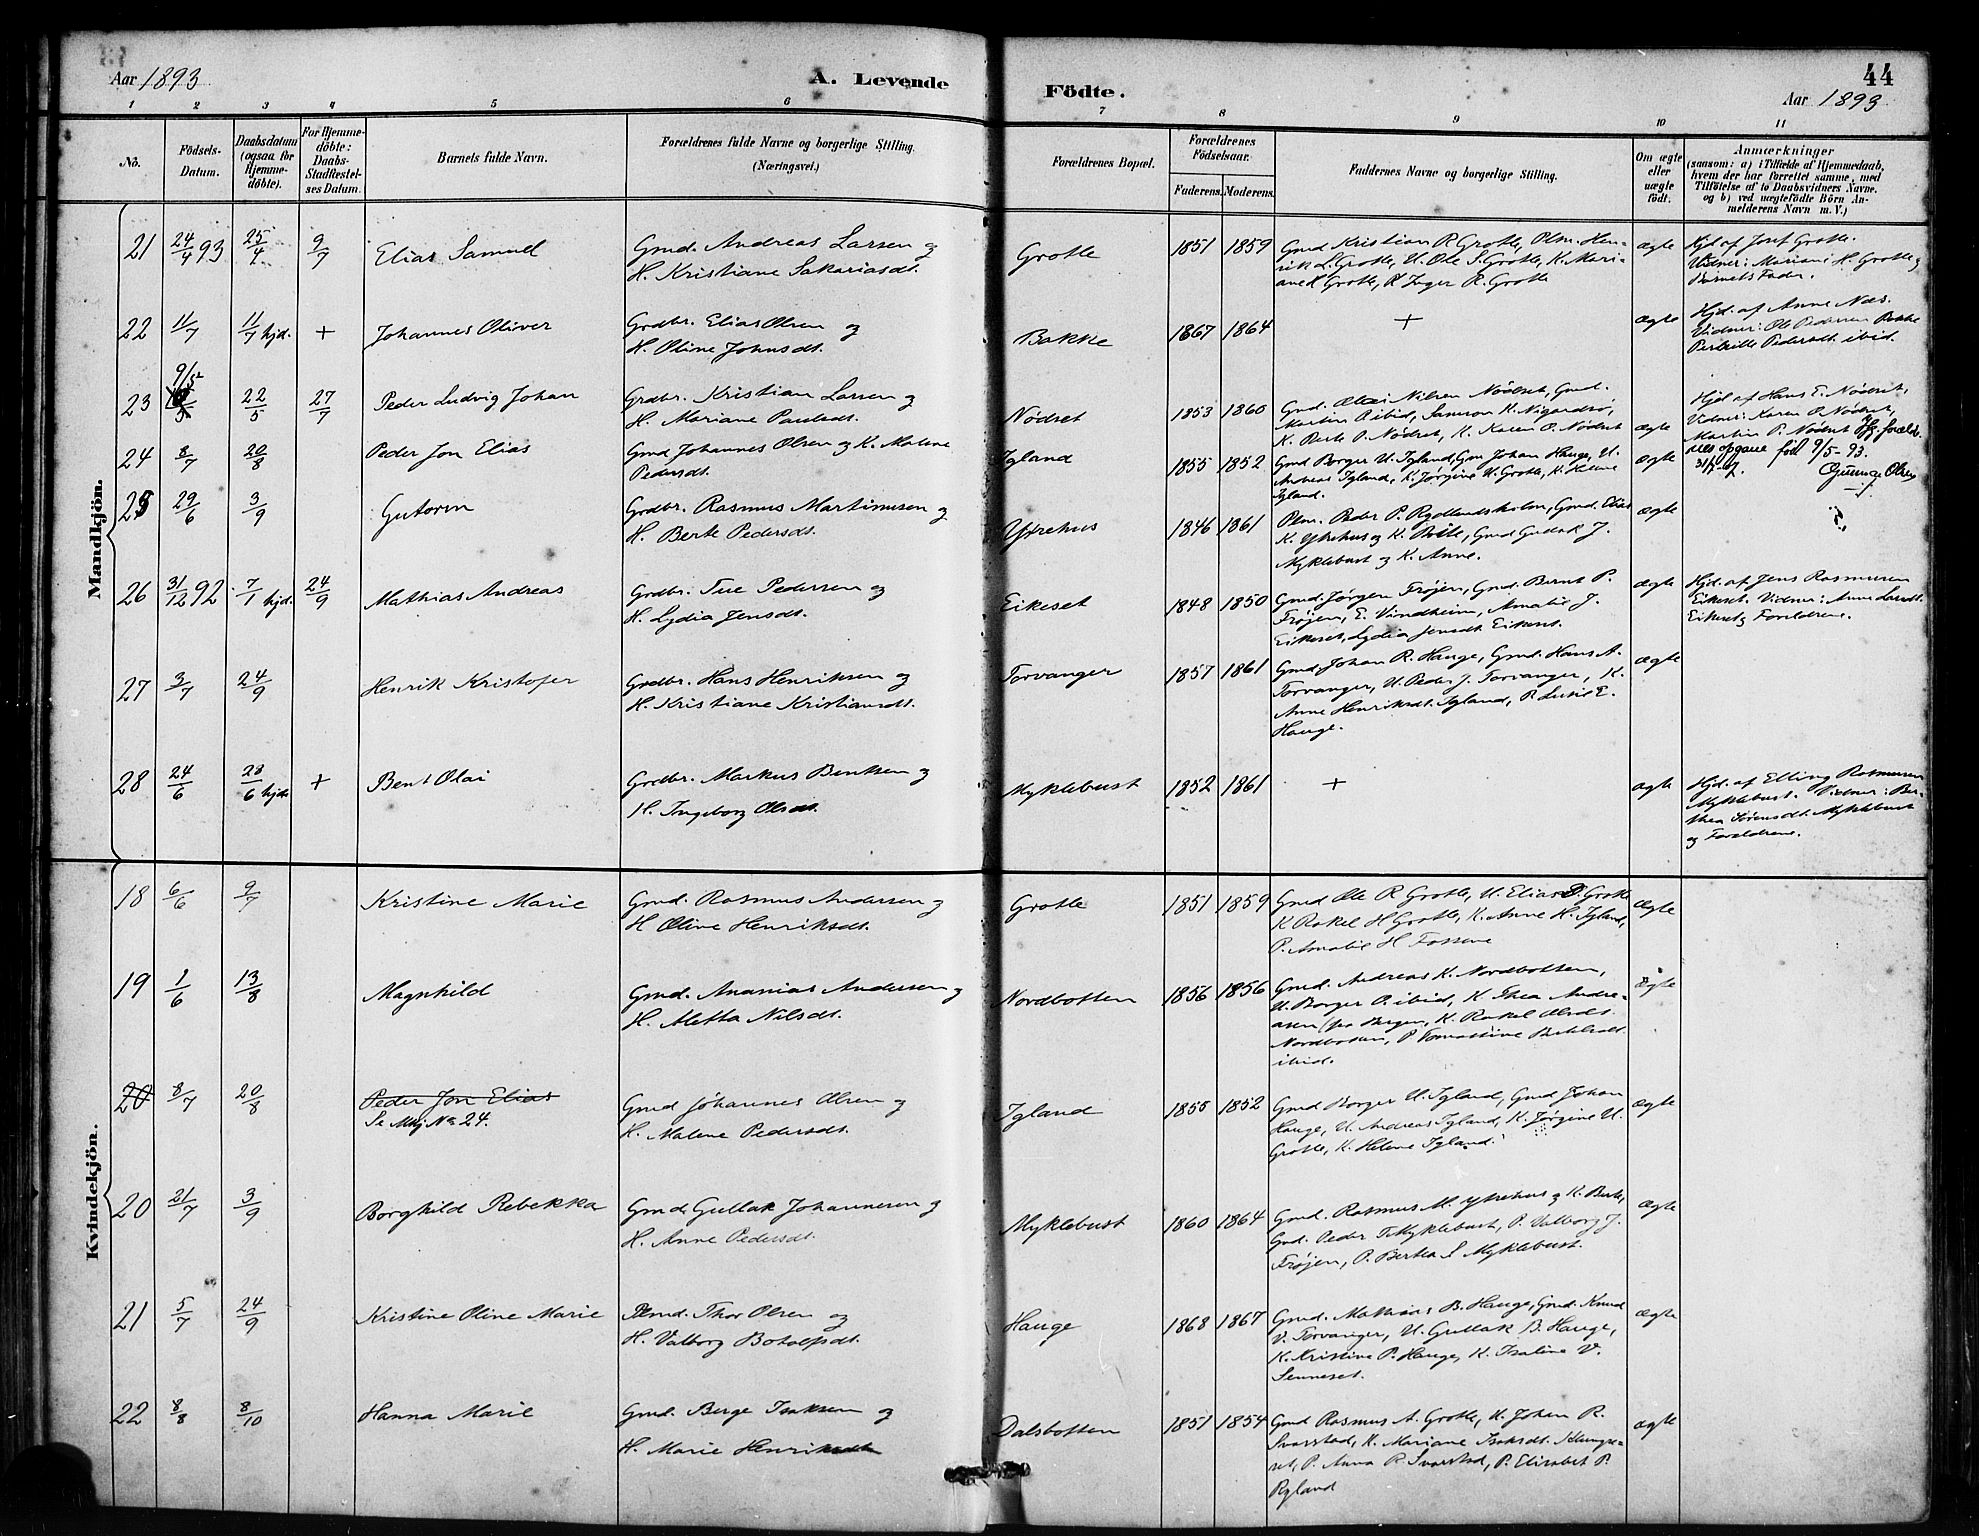 Aar 1893
A. Levende
Födte.
44
Aar 1893
1 2 3 4 5 6 7 8 9 10 11
No.
Födsels-Datum.
Daabsdatum (ogsaa for Hjemme-döbte).
For Hjemme-döbte: Daabs-Stadfestel-ses Datum.
Barnets fulde Navn.
Forældrenes fulde Navne og borgerlige Stilling. (Næringsvei.)
Forældrenes Bopæl.
Forældrenes Födselsaar.
Faderens. Moderens.
Faddernes Navne og borgerlige Stilling.
Om ægte eller uægte født.
Anmærkninger
(saasom: a) i Tilfælde af Hjemmedaab,
hvem der har forrettet samme, med
Tilföielse af to Daabsvidners Navne.
og b) ved uægtefödte Börn An-
melderens Navn m. V.)
Mandkjön.
21 24/4 93 25/4 9/7 Elias Samuel
Gmd. Andreas Larsen og
H. Kristiane Sakariasdt.
Grotle 1851 1859
Gmd Kristian R Grotle, Plm. Hen-
rik L. Grotle, U. Ole S. Grotle, K. Mari-
ane H Grotle, P. Inger R. Grotle
ægte
Hjd af Josef Grotle.
Vidner: Mariane H. Grotle og
Barnets Fader.
22 11/7 11/7 hjd. + Johannes Oliver
Grdbr. Elias Olsen og
H. Oline Johnsdt.
Bakke 1867 1864 + ægte
Hjd. af Anne Næs.
Vidner: Ole Pedersen Bakke
Pernille Pedersdt. ibid.
23 9/5 22/5 27/7 Peder Ludvig Johan
Grdbr. Kristian Larsen og
H. Mariane Paulsdt.
Nödset 1853 1860
Gmd. Olai Nilsen Nödset, Gmd.
Martin P. ibid, Samson K. Nigardsö,
K. Berte P. Nödset, K. Karen O. Nödset
ægte
Hjd af Hans E. Nödset,
Vidner: Karen O. Nödset,
Martin P. Nödset Iflg. foræld-
res opgave fød 9/5-93.
24 8/7 20/8 Peder Jon Elias
Gmd Johannes Olsen og K. Malene
Pedersdt.
Igland 1855 1852
Gmd Borger U. Igland, Gm Johan Hauge, U.
Andreas Igland, K. Jørgine U. Grotle, K. Helene
Igland.
ægte
25 29/6 3/9 Gutorm
Grdbr. Rasmus Martinusen og
H. Berte Pedersdt.
Ytrehus 1846 1861
Plm. Peder P. Rydlandsholm, Gmd. Elias
K. Ytrehus og K. Berte, Gmd Gullak J.
Myklebust og K. Anne.
ægte
26 31/12 92 7/1 hjd. 24/9 Mathias Andreas
Grdbr. Tue Pedersen og
H. Lydia Jensdt.
Eikeset 1848 1850
Gmd. Jørgen Frøjen, Gmd. Bernt P.
Frøjen, E. Vindheim, Amalie J.
Eikeset, Lydia Jensdt. Eikeset.
ægte
Hjd. af Jens Rasmusen
Eikeset. Vidner: Anne Larsdt.
Eikeset og Forældrene.
27 3/7 24/9 Henrik Kristofer
Grdbr. Hans Henriksen og
H. Kristiane Kristiansdt.
Torvanger 1857 1861
Gmd. Johan R. Hauge, Gmd. Hans A.
Torvanger, U. Peder J. Torvanger, K.
Anne Henriksdt. Igland, P. Lusie E.
Hauge.
ægte
28 24/6 28/6 hjd. + Bent Olai
Grdbr. Markus Bentsen og
H. Ingeborg Olsdt.
Myklebust 1852 1861 + ægte
Hjd. af Elling Rasmusen
Myklebust. Vidner: Ber-
thea Sörensdt. Myklebust
og Forældrene.
Kvindekjön.
18 6/6 9/7 Kristine Marie
Gmd. Rasmus Andersen og
H Oline Henriksdt.
Grotle 1851 1859
Gmd Ole R Grotle, U. Elias D. Grotle
K Rakel H Grotle, K. Anne H. Igland,
P. Amalie H Fossene
ægte
19 1/6 13/8 Magnhild
Gmd. Ananias Andersen og
H. Metta Nilsdt.
Nordbotten 1856 1856
Gmd. Andreas K. Nordbotten,
U. Borger O. ibid, K. Thea Andre-
asen (fra Bergen, K. Rakel Olsdt.
Nordbotten, P Tomasine
ibid.
ægte
20 8/7 20/8 Peder Jon Elias
Se Mkj No 24.
Gmd Johannes Olsen og
H. Malene Pedersdt.
Igland 1855 1852
Gmd Borger U. Igland, Gmd Johan
Hauge, U. Andreas Igland, K. Jørgine U.
Grotle, K. Helene Igland.
ægte
20 21/7 3/9 Borghild Rebekka
Gmd Gullak Johannesen og
H. Anne Pedersdt.
Myklebust 1860 1864
Gmd. Rasmus M. Ytrehus og K. Berte,
Gmd. Peder T Myklebust, P. Valborg J.
Frøjen, P. Bertea S Myklebust.
ægte
21 5/7 24/9 Kristine Oline Marie
Plmd. Thor Olsen og
H. Valborg Botolfsdt.
Hauge 1868 1867
Gmd. Mathias B. Hauge, Gmd. Knud
V. Torvanger, U. Gullak B. Hauge,
K. Kristine P. Hauge, K. Isaline V.
Senneset.
ægte
22 8/8 8/10 Hanna Marie
Gmd. Berge Isaksen og
H. Marie Henriksdt.
Dalsbotten 1851 1854
Gmd Rasmus A. Grotle, K. Johan R.
Svarstad, K. Mariane Isaksdt. Klungre-
set, P. Anna R. Svarstad, P. Elisabet P.
Rylænd
ægte